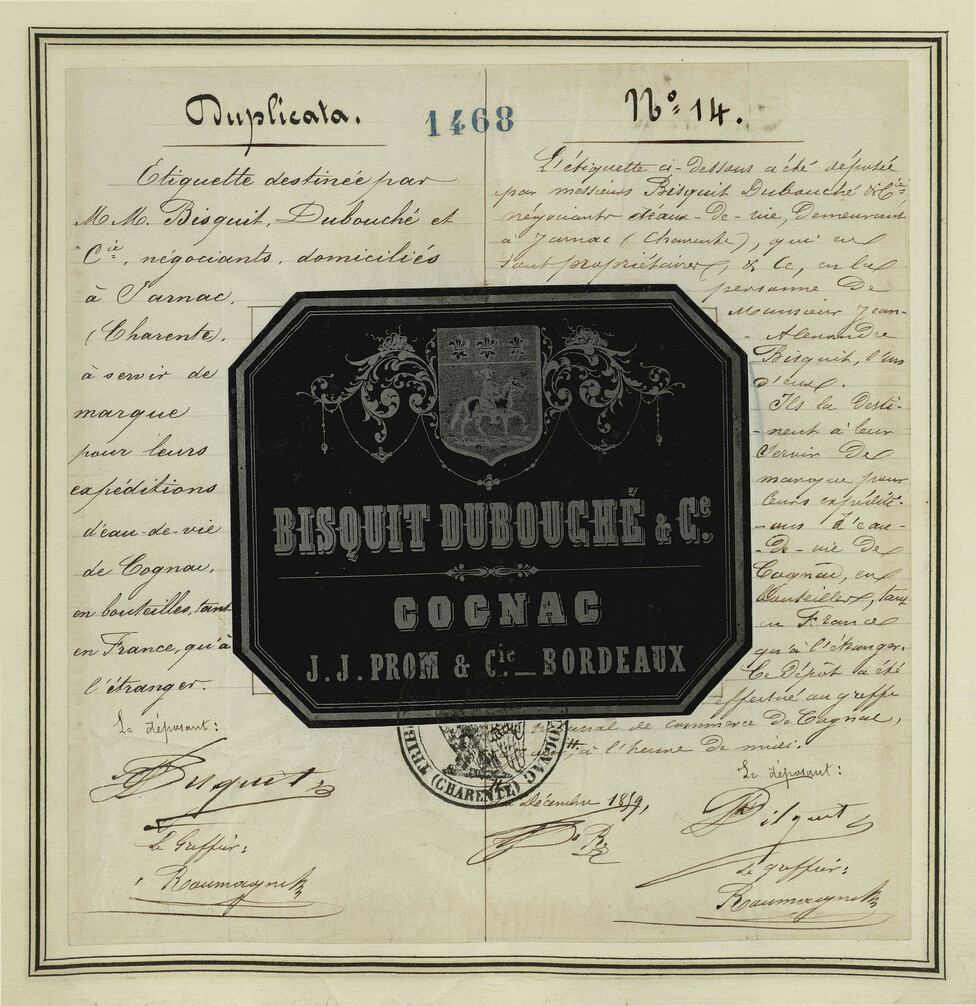 Duplicata.
1468
Nº 14.
Etiquette destinée par
M.M. Bisquit, Dubouché et
Cie, négociants, domiciliés
à Jarnac,
(Charente),
à servir de
marque
pour leurs
expéditions
d'eau-de-vie
de Cognac,
en bouteilles, tant
en France, qu'à
l'étranger.
Le déposant:
Bisquit
Le Greffier:
L'étiquette ci-dessous a été déposée
par messieurs Bisquit Dubouché & Cie
négociants d'eaux-de-vie, demeurant
à Jarnac (Charente), qui en
sont propriétaires, & Ce, en la
personne de
Monsieur Jean-
Alexandre
Bisquit, l'un
d'eux.
Ils la desti-
-nent à leur
servir de
marque pour
leurs expédit-
-ions d'eau-
-de-vie de
Cognac, en
bouteilles, tant
en France
qu'à l'étranger.
Ce dépôt a été
effectué au greffe
tribunal de commerce de Cognac,
à l'heure de midi.
décembre
Le déposant:
Bisquit
Le greffier:
BISQUIT DUBOUCHÉ & Ce.
COGNAC
J.J. PROM & Cie._BORDEAUX
TRIB
(CHARENTE)
COGNAC